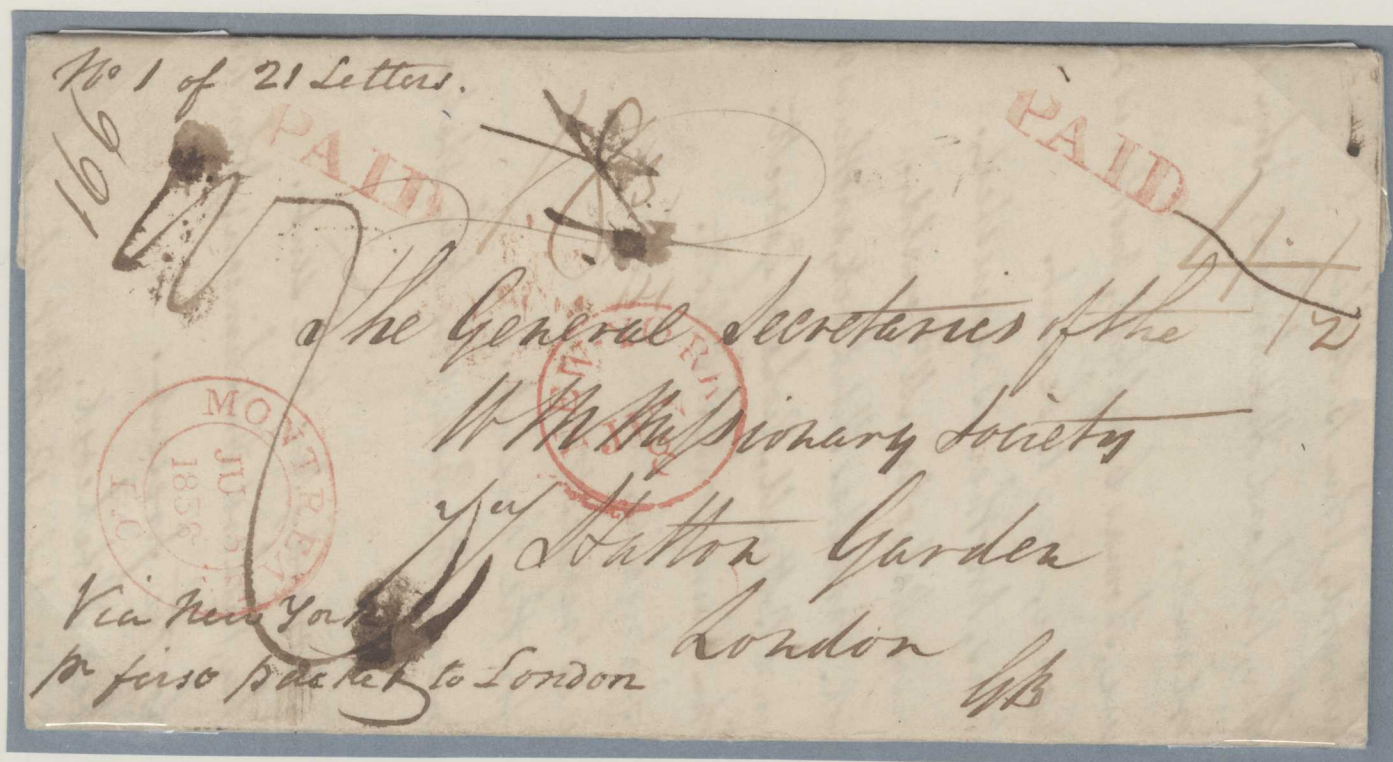 No 1 of 21 Letters.
166
PAID
PAID
The General Secretaries of the
W M Missionary Society
77 Hatton Garden
London
GB
NEW YORK
MONTREAL
JU
1838
L.C
Via New York
pr first packet to London